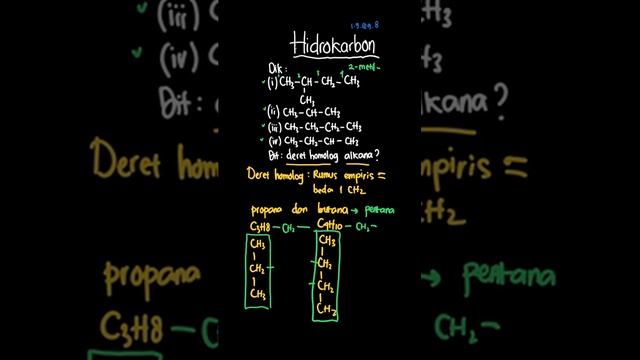 1.9.129.8
Hidrokarbon
Dik: 2-metil-
(i) CH₃-CH-CH₂-CH₃
CH₃
(ii) CH₃-CH-CH₃
(iii) CH₃-CH₂-CH₂-CH₃
(iv) CH₃-CH₂-CH-CH₃
Dit: deret homolog alkana?
Deret homolog: Rumus empiris =
beda 1 CH₂
propana dan butana → pentana
C₃H₈ - CH₂ - C₄H₁₀ - CH₂ -
CH₃ CH₃
CH₂ - CH₂
CH₃ CH₂
CH₂
(iii)
(iv)
Dit:
CH₃
alkana?
empiris =
CH₂
propana
C₃H₈ -
→ pentana
CH₂ -